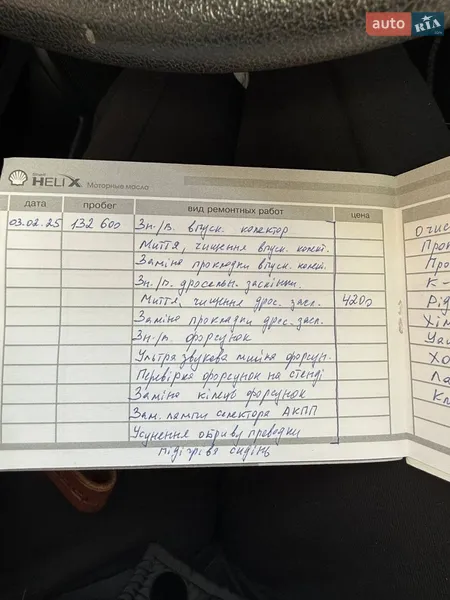 auto RIA.com
Shell HELIX Моторные масла
дата пробег вид ремонтных работ цена
03.02.25 132 600 Зн./в. впуск. колектор
Миття, чищення впуск. колект.
Заміна прокладки впуск. колек.
Зн./в. дросельн. заслінки.
Миття, чищення дрос. засл. 4200
Заміна прокладки дрос. засл.
Зн./в. форсунок
Ультра звукова мийка форсун.
Перевірка форсунок на стенді
Заміна кілець форсунок
Зам. лампи селектора АКПП
Усунення обриву проводки
підігріва сидінь
Очис
Про
Про
К-
Рід
Хім
Хо
Ла